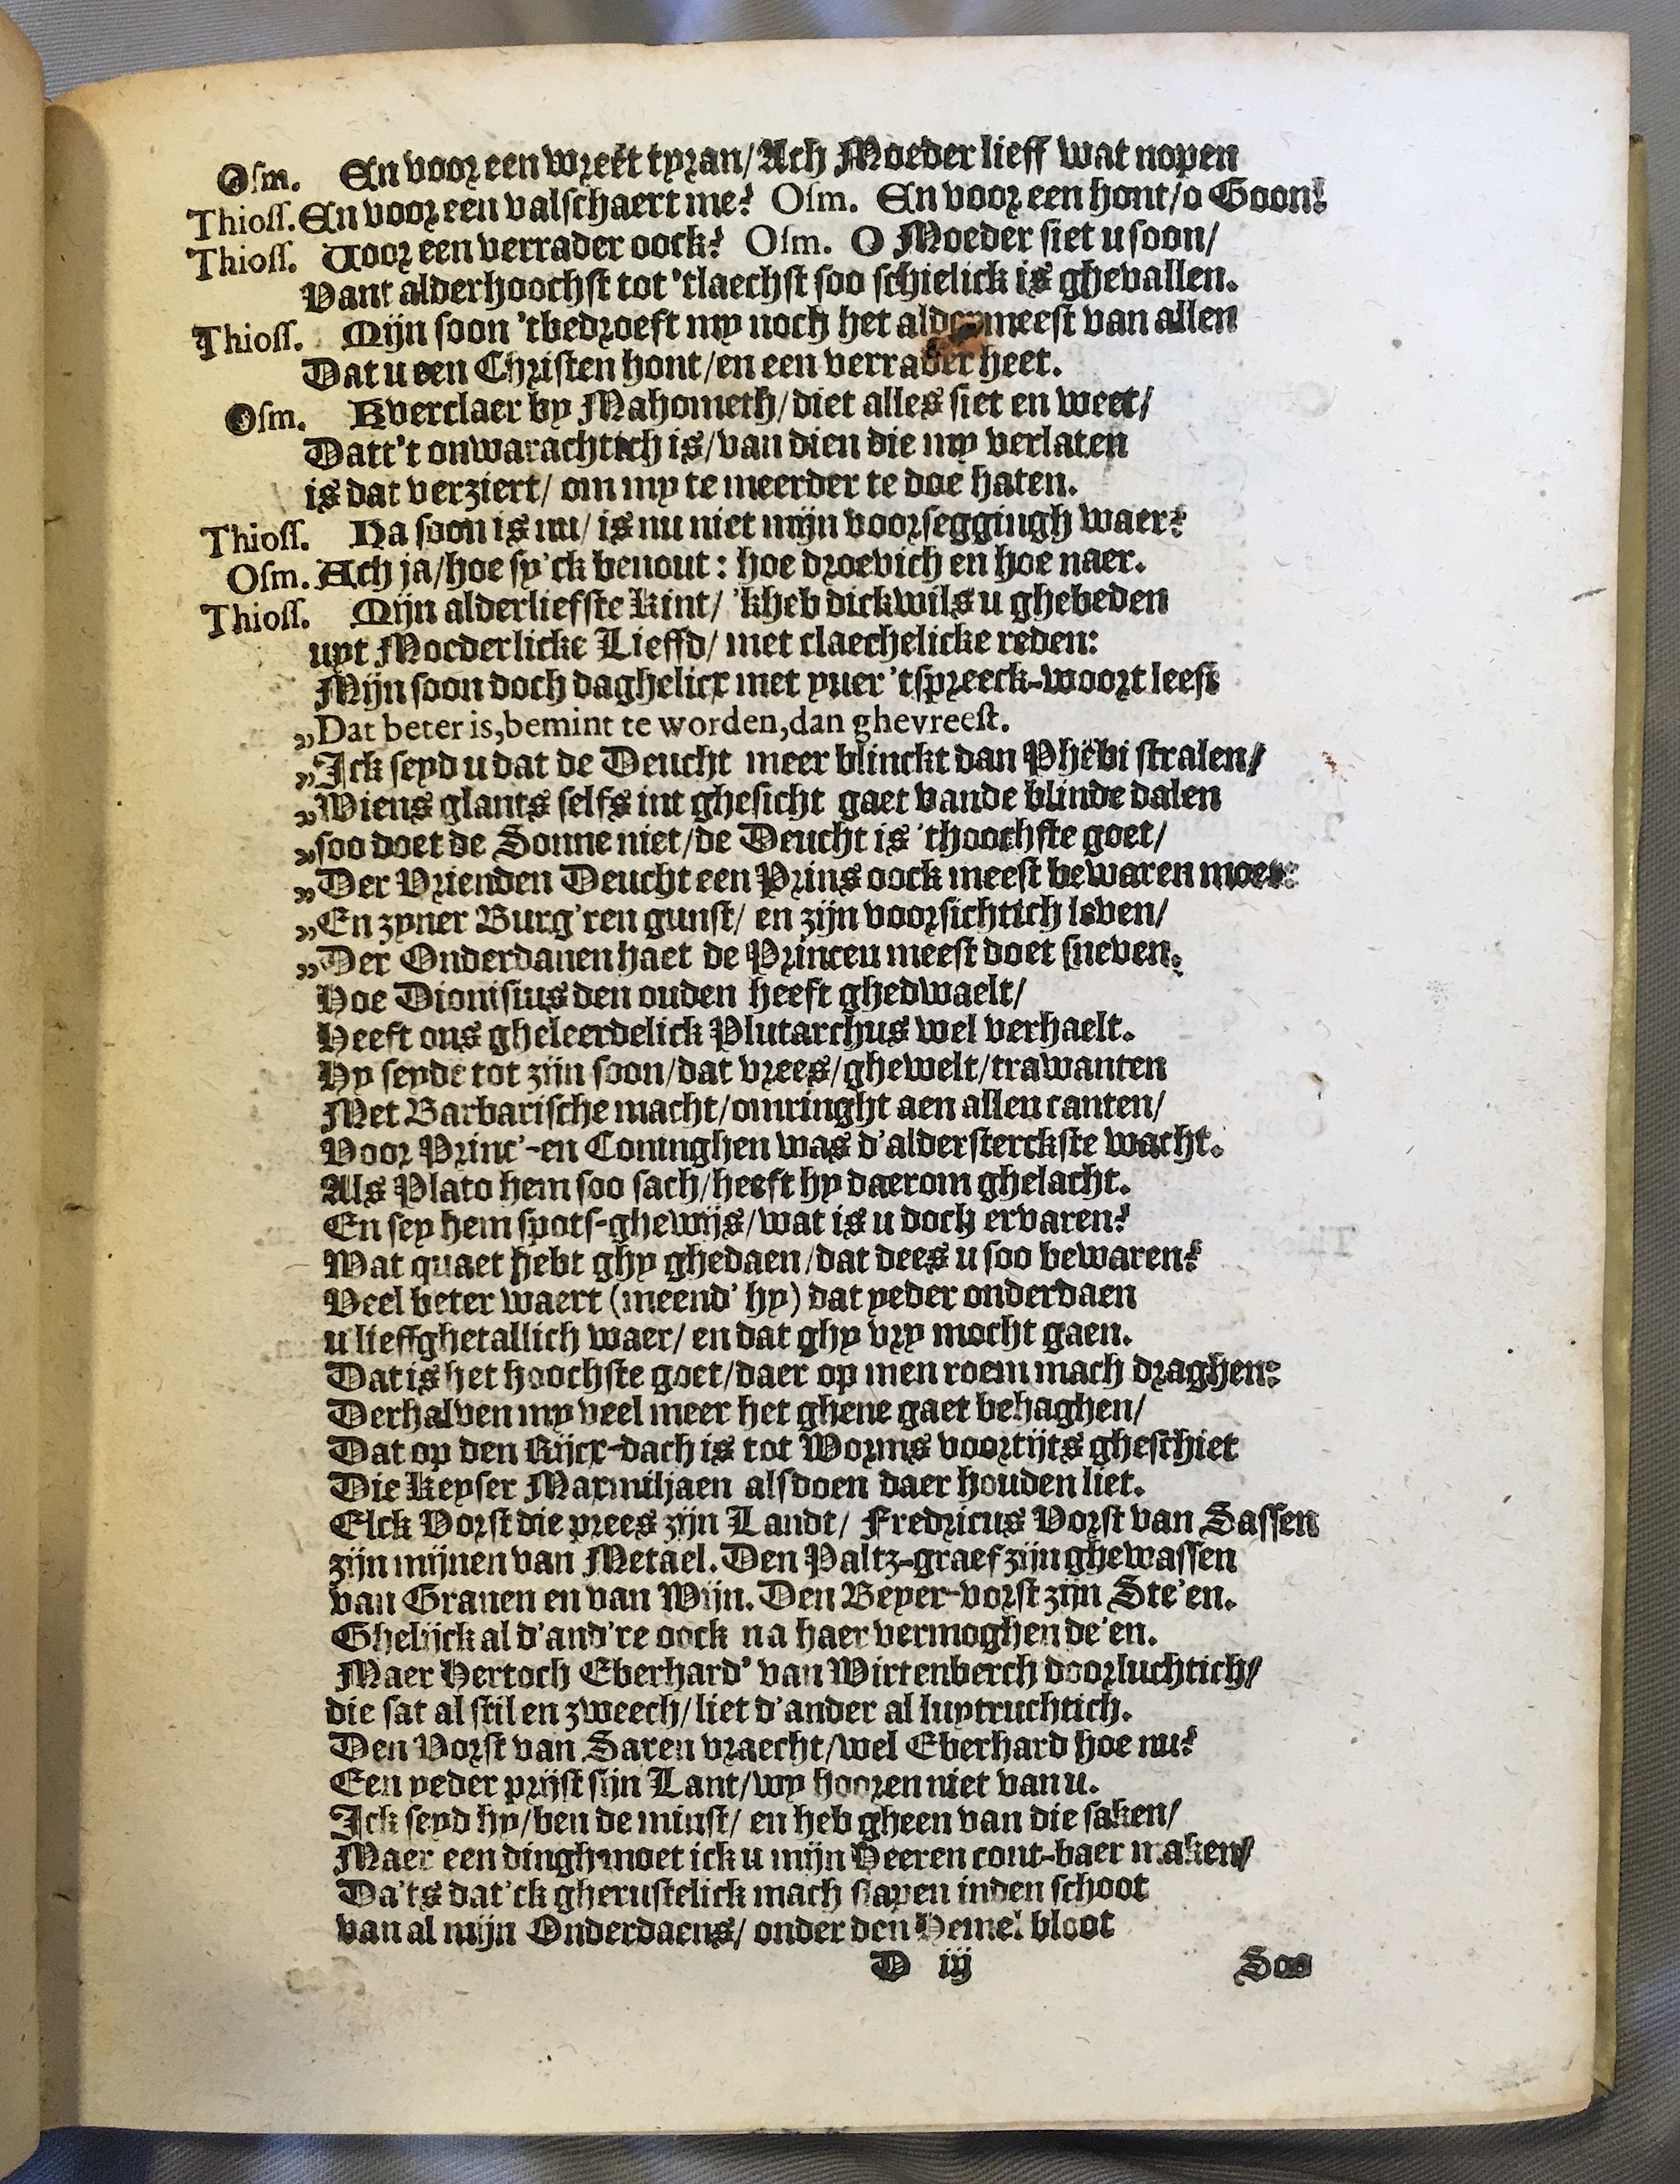 Osm. En voor een wreet tyran/Ach Moeder lieff wat nopen
Thioss. En voor een valschaert me? Osm. En voor een hont/o Goon!
Thioss. Voor een verrader oock? Osm. O Moeder siet u soon/
Vant alderhoochst tot 'tlaechst soo schielick is ghevallen.
Thioss. Mijn soon 'tbedroeft my noch het aldermeest van allen
Dat u een Christen hont/en een verrader heet.
Osm. Kverclaer by Mahometh/diet alles siet en weet/
Datt't onwarachtich is/van dien die my verlaten
is dat verziert/ om my te meerder te doē haten.
Thioss. Ha soon is nu/ is nu niet mijn voorseggingh waer?
Osm. Ach ja/hoe sy'ck benout: hoe droevich en hoe naer.
Thioss. Mijn alderliefste Kint/ 'kheb dickwils u ghebeden
uyt Moederlicke Lieffd/ met claechelicke reden:
Mijn soon doch daghelicx met yver 'tspreeck-woort leest
„Dat beter is, bemint te worden, dan ghevreest.
„Ick seyd u dat de Deucht meer blinckt dan Phëbi stralen/
„Wiens glants selfs int ghesicht gaet vande blinde dalen
„soo doet de Sonne niet/de Deucht is 'thoochste goet/
„Der Vrienden Deucht een Prins oock meest bewaren moet:
„En zyner Burg'ren gunst/ en zijn voorsichtich leven/
„Der Onderdanen haet de Princen meest doet sneven.
Hoe Dionisius den ouden heeft ghedwaelt/
Heeft ons gheleerdelick Plutarchus wel verhaelt.
Hy seyde tot zijn soon/dat vrees/ghewelt/trawanten
Met Barbarische macht/omringht aen allen canten/
Voor Princ'-en Coninghen was d'aldersterckste wacht.
Als Plato hem soo sach/heeft hy daerom ghelacht.
En sey hem spots-ghewijs/wat is u doch ervaren?
Wat quaet hebt ghy ghedaen/dat dees u soo bewaren?
Veel beter waert (meend' hy) dat yeder onderdaen
u lieffghetallich waer/ en dat ghy vry mocht gaen.
Dat is het hoochste goet/daer op men roem mach draghen:
Derhalven my veel meer het ghene gaet behaghen/
Dat op den Rijcx-dach is tot Worms voortijts gheschiet
Die Keyser Maxmiljaen alsdoen daer houden liet.
Elck Vorst die prees zijn Landt/ Fredricus Vorst van Sassen
zijn mijnen van Metael. Den Paltz-graef zijn ghewassen
van Granen en van Wijn. Den Beyer-vorst zijn Ste'en.
Ghelijck al d'and're oock na haer vermoghen de'en.
Maer Hertoch Eberhard' van Wirtenberch doorluchtich/
die sat al stil en zweech/liet d'ander al luytruchtich.
Den Vorst van Saxen vraecht/wel Eberhard hoe nu?
Een yeder prijst sijn Lant/wy hooren niet van u.
Ick seyd hy/ben de minst/ en heb gheen van die saken/
Maer een dingh moet ick u mijn Heeren cont-baer maken/
Da'ts dat'ck gherustelick mach slapen inden schoot
van al mijn Onderdaens/ onder den Hemel bloot
D iij Soo